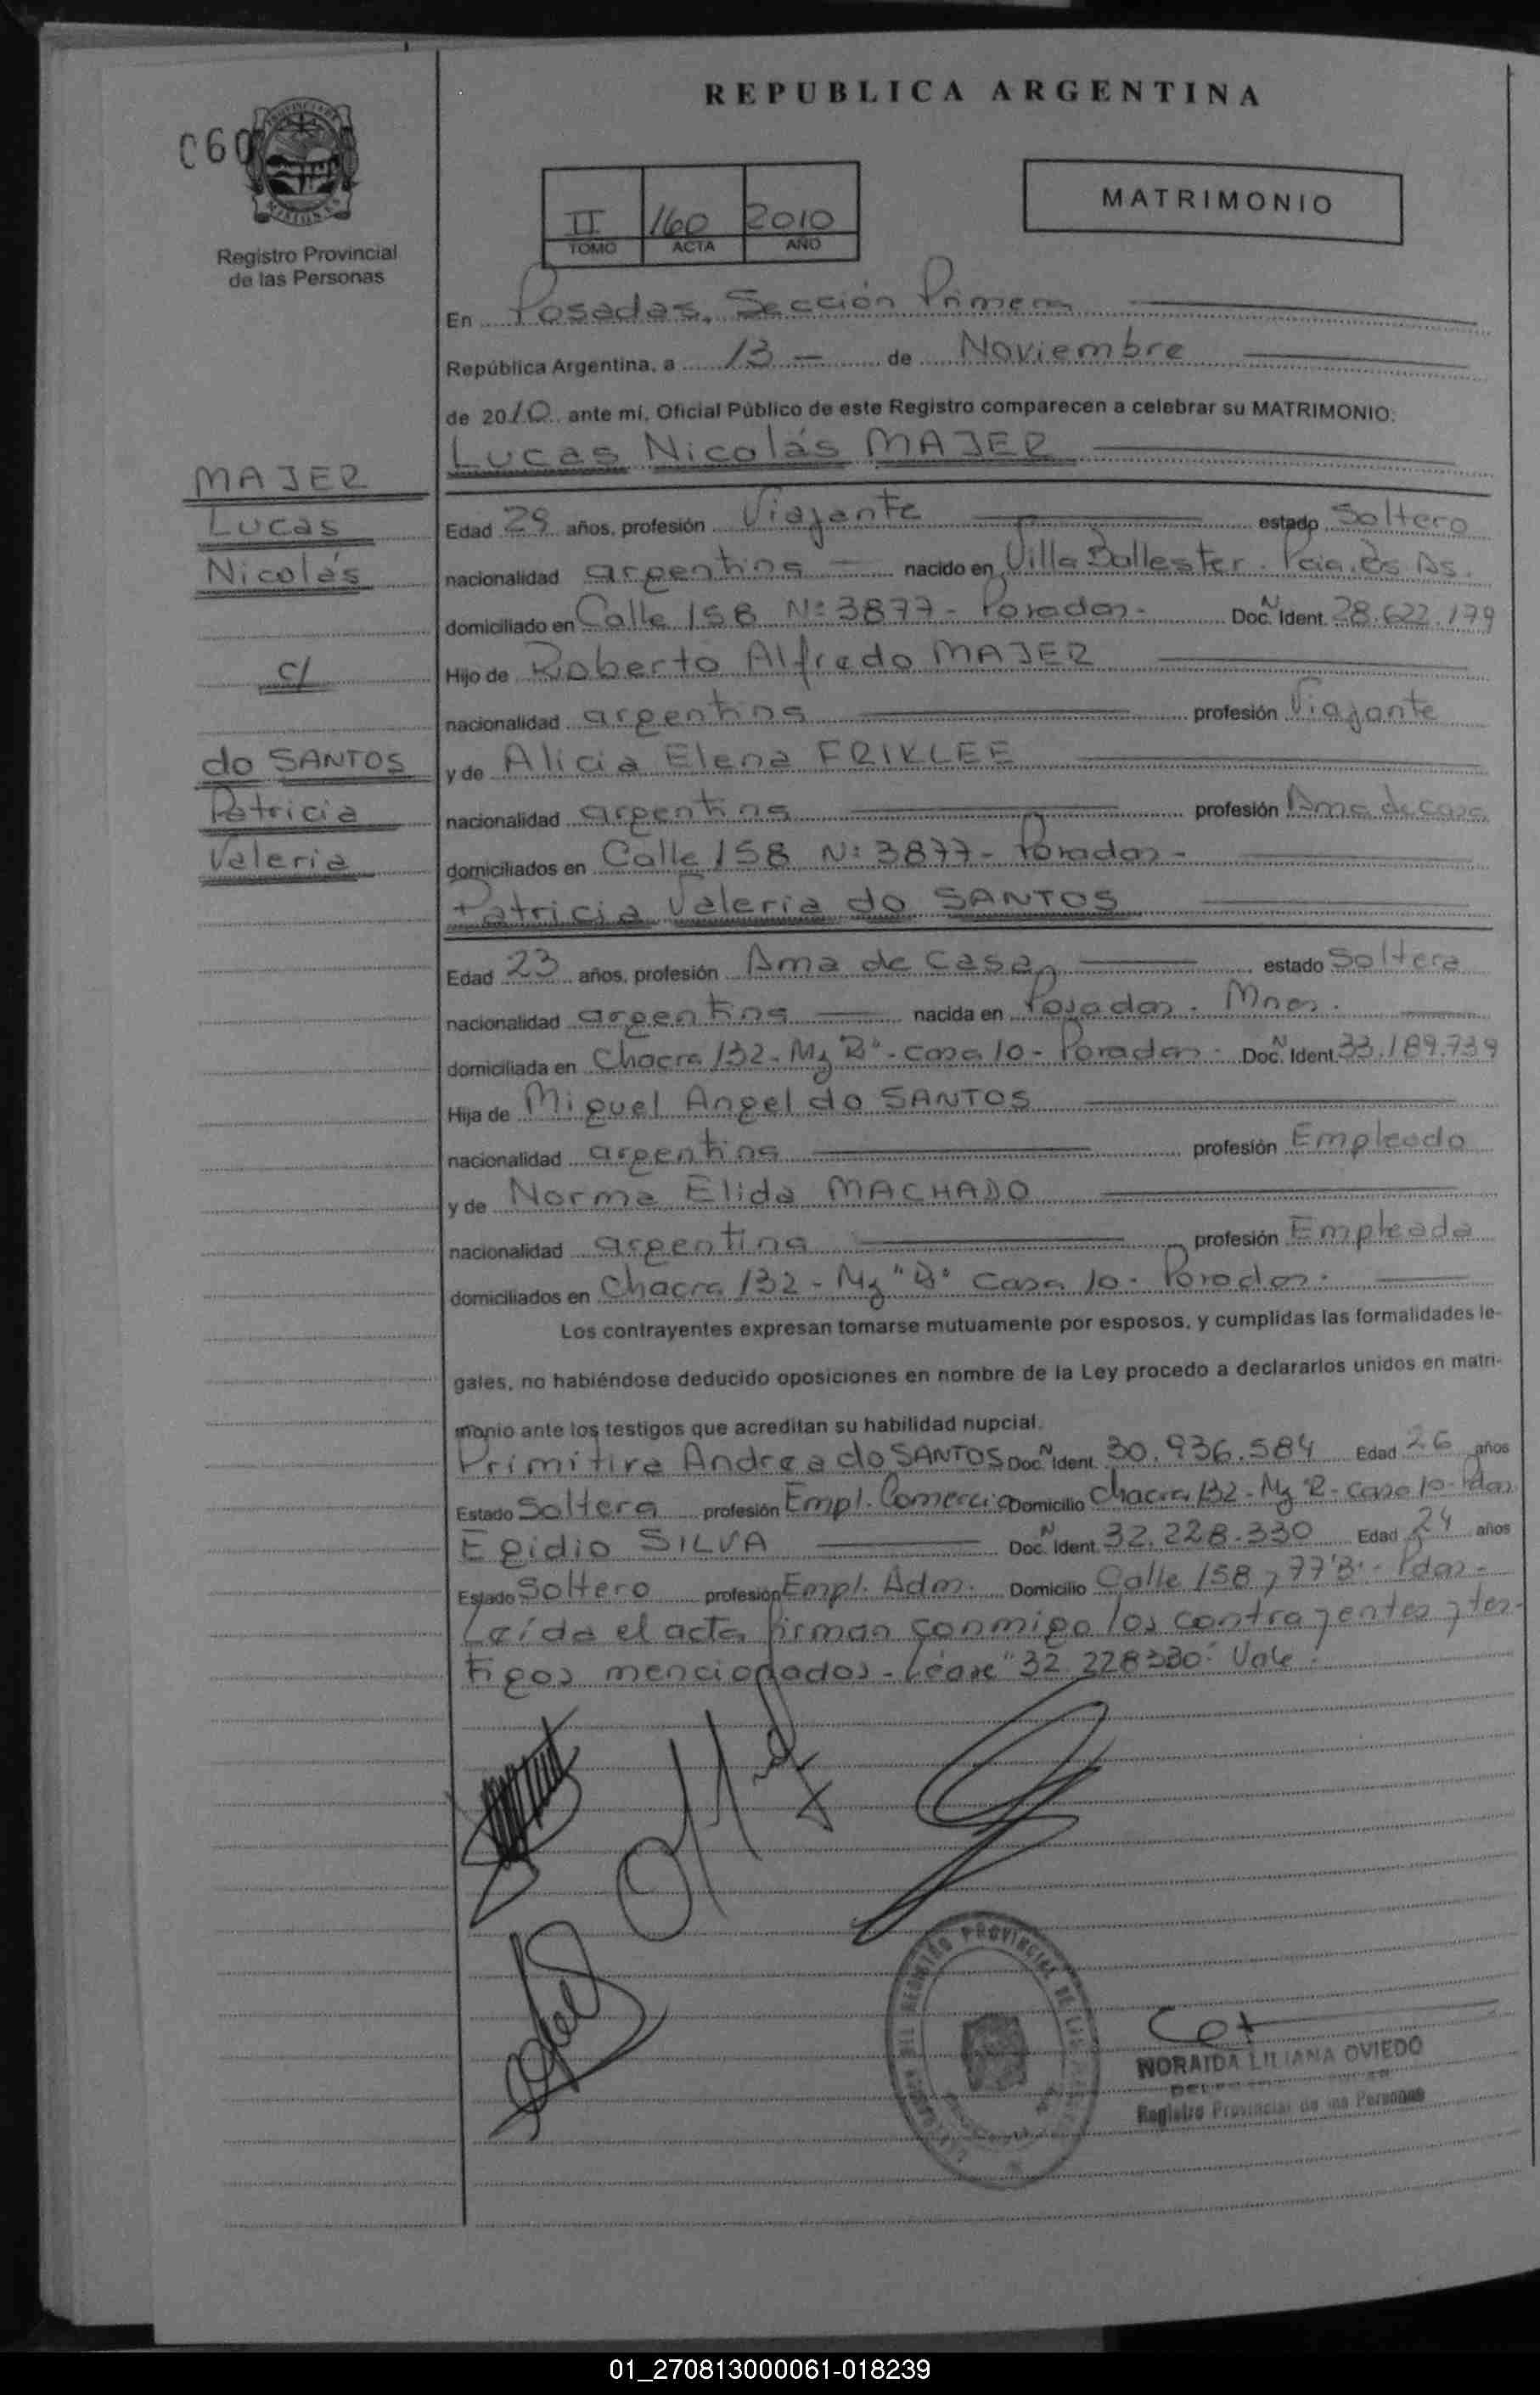 REPUBLICA ARGENTINA
C60
MISIONES
Registro Provincial
de las Personas
II 160 2010
TOMO ACTA AÑO
MATRIMONIO
En Posadas, Sección Primera
República Argentina, a 13 - de Noviembre
de 2010 ante mí, Oficial Público de este Registro comparecen a celebrar su MATRIMONIO:
Lucas Nicolás MAJER
MAJER
Lucas
Nicolás
c/
do SANTOS
Patricia
Valeria
Edad 29 años, profesión Viajante estado Soltero
nacionalidad argentina nacido en Villa Ballester. Pcia. Bs As.
domiciliado en Calle 158 Nº 3877 - Posadas - Doc. N Ident. 28.622.179
Hijo de Roberto Alfredo MAJER
nacionalidad argentina profesión Viajante
y de Alicia Elena FRIKLEE
nacionalidad argentina profesión Ama de casa
domiciliados en Calle 158 Nº 3877 - Posadas -
Patricia Valeria do SANTOS
Edad 23 años, profesión Ama de casa estado Soltera
nacionalidad argentina nacida en Posadas - Mnes.
domiciliada en Chacra 132 - Mz "B" - casa 10 - Posadas - Doc. N Ident. 33.189.739
Hija de Miguel Angel do SANTOS
nacionalidad argentina profesión Empleado
y de Norma Elida MACHADO
nacionalidad argentina profesión Empleada
domiciliados en Chacra 132 - Mz "B" casa 10 - Posadas -
Los contrayentes expresan tomarse mutuamente por esposos, y cumplidas las formalidades le-
gales, no habiéndose deducido oposiciones en nombre de la Ley procedo a declararlos unidos en matri-
monio ante los testigos que acreditan su habilidad nupcial.
Primitiva Andrea do SANTOS Doc. N Ident. 30.936.584 Edad 26 años
Estado Soltera profesión Empl. Comercio Domicilio Chacra 132 - Mz B - casa 10 - Pdas
Egidio SILVA Doc. N Ident. 32.228.330 Edad 24 años
Estado Soltero profesión Empl. Adm. Domicilio Calle 158 y 77 B - Pdas -
Leída el acta firman conmigo los contrayentes y tes-
tigos mencionados - Léase "32.228330" Vale.
REGISTRO PROVINCIAL DE LAS
NORAIDA LILIANA OVIEDO
Registro Provincial de las Personas
01_270813000061-018239